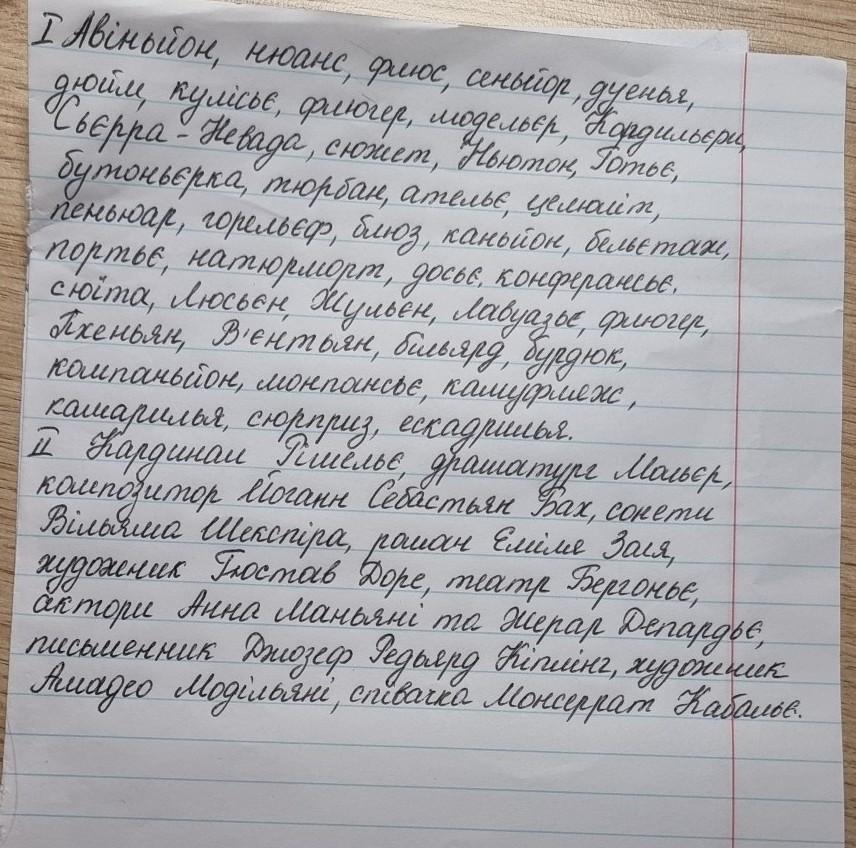 I Авіньйон, нюанс, флюс, сеньйор, дуенья,
дюйм, кулісьє, флюгер, модельєр, Кордильєри,
Сьєрра-Невада, сюжет, Ньютон, Готьє,
бутоньєрка, тюрбан, ательє, целюліт,
пеньюар, горельєф, блюз, каньйон, бельєтаж,
портьє, натюрморт, досьє, конферансьє,
сюїта, Люсьєн, Жульєн, Лавуазьє, флюгер,
Пхеньян, В'єнтьян, більярд, бурдюк,
компаньйон, монпансьє, камуфляж,
камарилья, сюрприз, ескадрилья.
II Кардинал Рішельє, драматург Мольєр,
композитор Йоганн Себастьян Бах, сонети
Вільяма Шекспіра, роман Еміля Золя,
художник Гюстав Доре, театр Бергоньє,
актори Анна Маньяні та Жерар Депардьє,
письменник Джозеф Редьярд Кіплінг, художник
Амадео Модільяні, співачка Монсеррат Кабальє.